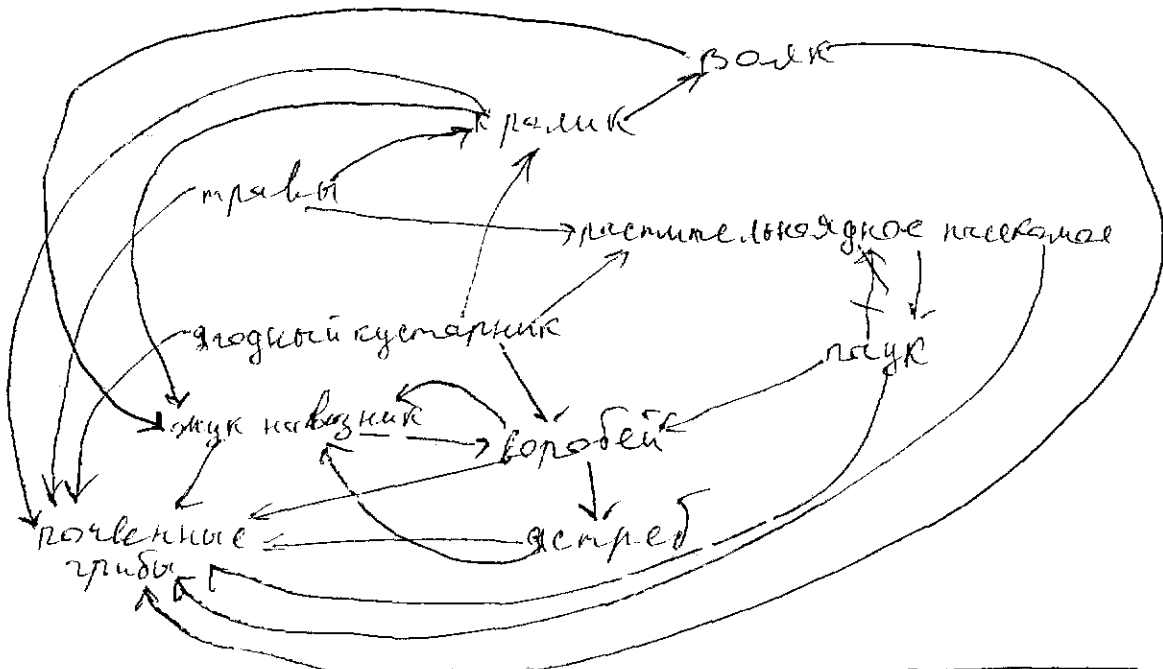 волк
кролик
травы
растительноядное насекомое
ягодный кустарник
паук
жук навозник
воробей
почвенные
грибы
ястреб